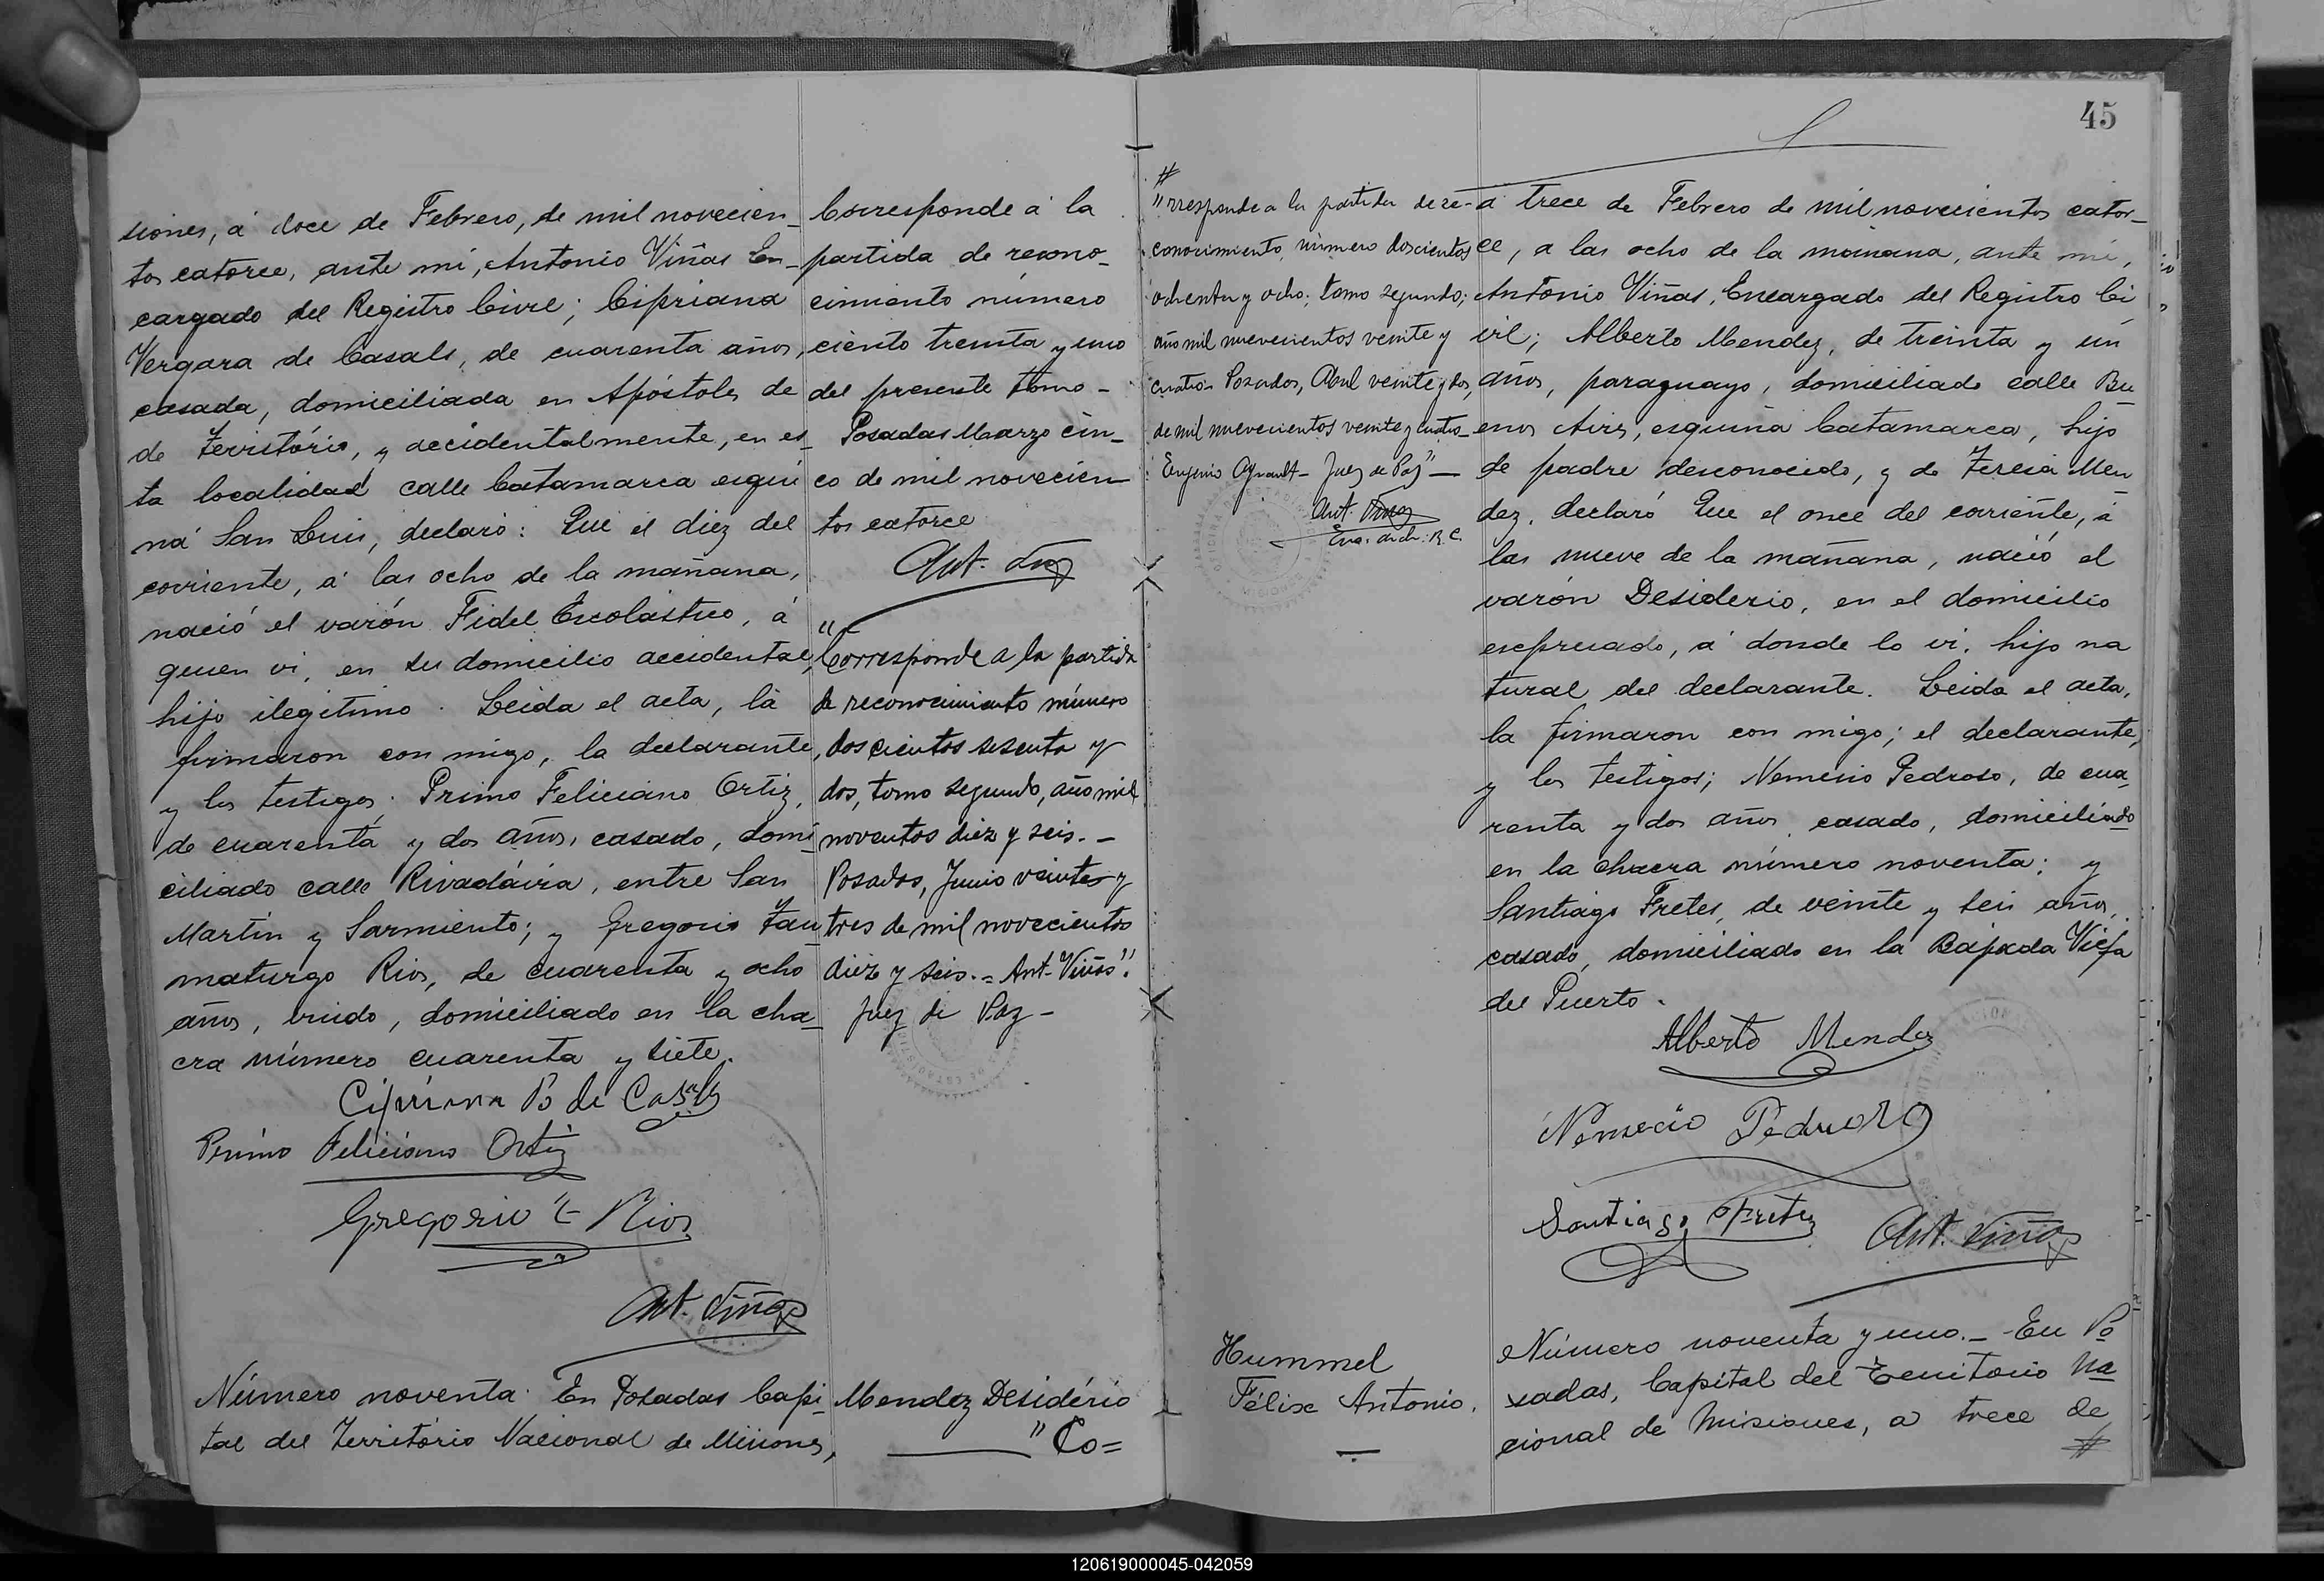 siones, á doce de Febrero, de mil novecien_
tos catorce, ante mi, Antonio Viñas En_
cargado del Registro Civil; Cipriana
Vergara de Casals, de cuarenta años,
casada, domiciliada en Apóstoles de
de Território, y accidentalmente, en es_
ta localidad calle Catamarca esqui
ná San Luis, declaró: Que el diez del
corriente, á las ocho de la mañana,
nació el varón Fidel Escolástico, á
quien vi, en su domicilio accidental,
hijo ilegitimo. Leida el acta, la
firmaron con migo, la declarante,
y los testigos; Primo Feliciano Ortiz,
de cuarenta y dos años, casado, domi
ciliado calle Rivadávia, entre San
Martin y Sarmiento; y Gregorio Tau
maturgo Rios, de cuarenta y ocho
años, viudo, domiciliado en la cha_
cra número cuarenta y siete.
Cipriana de Casals
Primo Feliciano Ortiz
Gregorio T Rios
Ant. Viñas
Número noventa. En Posadas Capi_
tal del Território Nacional de Misiones,
Corresponde á la
partida de recono_
cimiento número
ciento treinta y uno
del presente tomo -
Posadas Marzo cin_
co de mil novecien
tos catorce
Ant. Viñas
"Corresponde a la partida
de reconocimiento número
doscientos sesenta y
dos, tomo segundo, año mil
noventos diez y seis. -
Posadas, Junio veinte y
tres de mil novecientos
diez y seis. = Ant. Viñas".
Juez de Paz -
Mendez Desidério
" Co=
45
#
"rresponde a la partida de re-
conocimiento, número doscientos
ochenta y ocho; tomo segundo;
año mil nuevecientos veinte y
cuatro. Posadas, Abril veinte y dos,
de mil nuevecientos veinte y cuatro_
Eugenio - Juez de Paz" -
Ant. Viñas
R. C.
á trece de Febrero de mil novecientos cator_
ce, a las ocho de la mañana, ante mi,
Antonio Viñas, Encargado del Registro Ci
vil; Alberto Mendez, de treinta y un
años, paraguayo, domiciliado calle Bu_
enos Aires, esquina Catamarca, hijo
de padre desconocido, y de Teresa Men
dez, declaró Que el once del corriente, á
las nueve de la mañana, nació el
varón Desiderio, en el domicilio
expresado, á donde lo vi, hijo na
tural del declarante. Leida el acta,
la firmaron con migo; el declarante,
y los testigos; Nemesio Pedroso, de cua_
renta y dos años, casado, domiciliado
en la chacra número noventa; y
Santiago Fretes, de veinte y seis años,
casado, domiciliado en la Bajada Vieja
del Puerto.
Alberto Mendez
Nemecio Pedroso
Santiago Fretez
Ant. Viñas
Hummel
Félix Antonio.
Número noventa y uno._ En Po
sadas, Capital del Territorio Na
cional de Misiones, a trece de
#
120619000045-042059